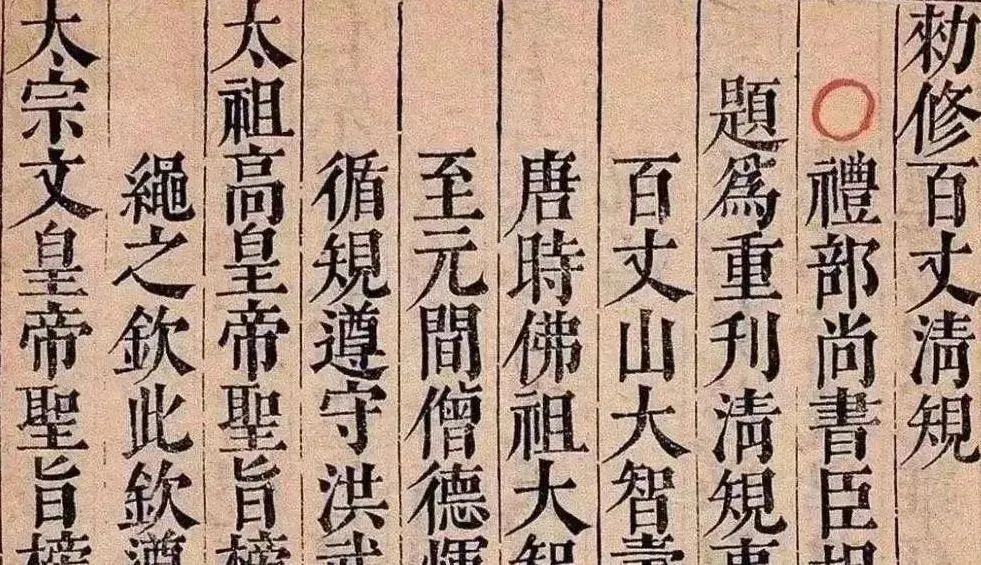 勑修百丈清規
禮部尚書臣胡
題爲重刊清規事
百丈山大智壽
唐時佛祖大智
至元間僧德煇
循規遵守洪武
太祖高皇帝聖旨榜
繩之欽此欽遵
太宗文皇帝聖旨榜